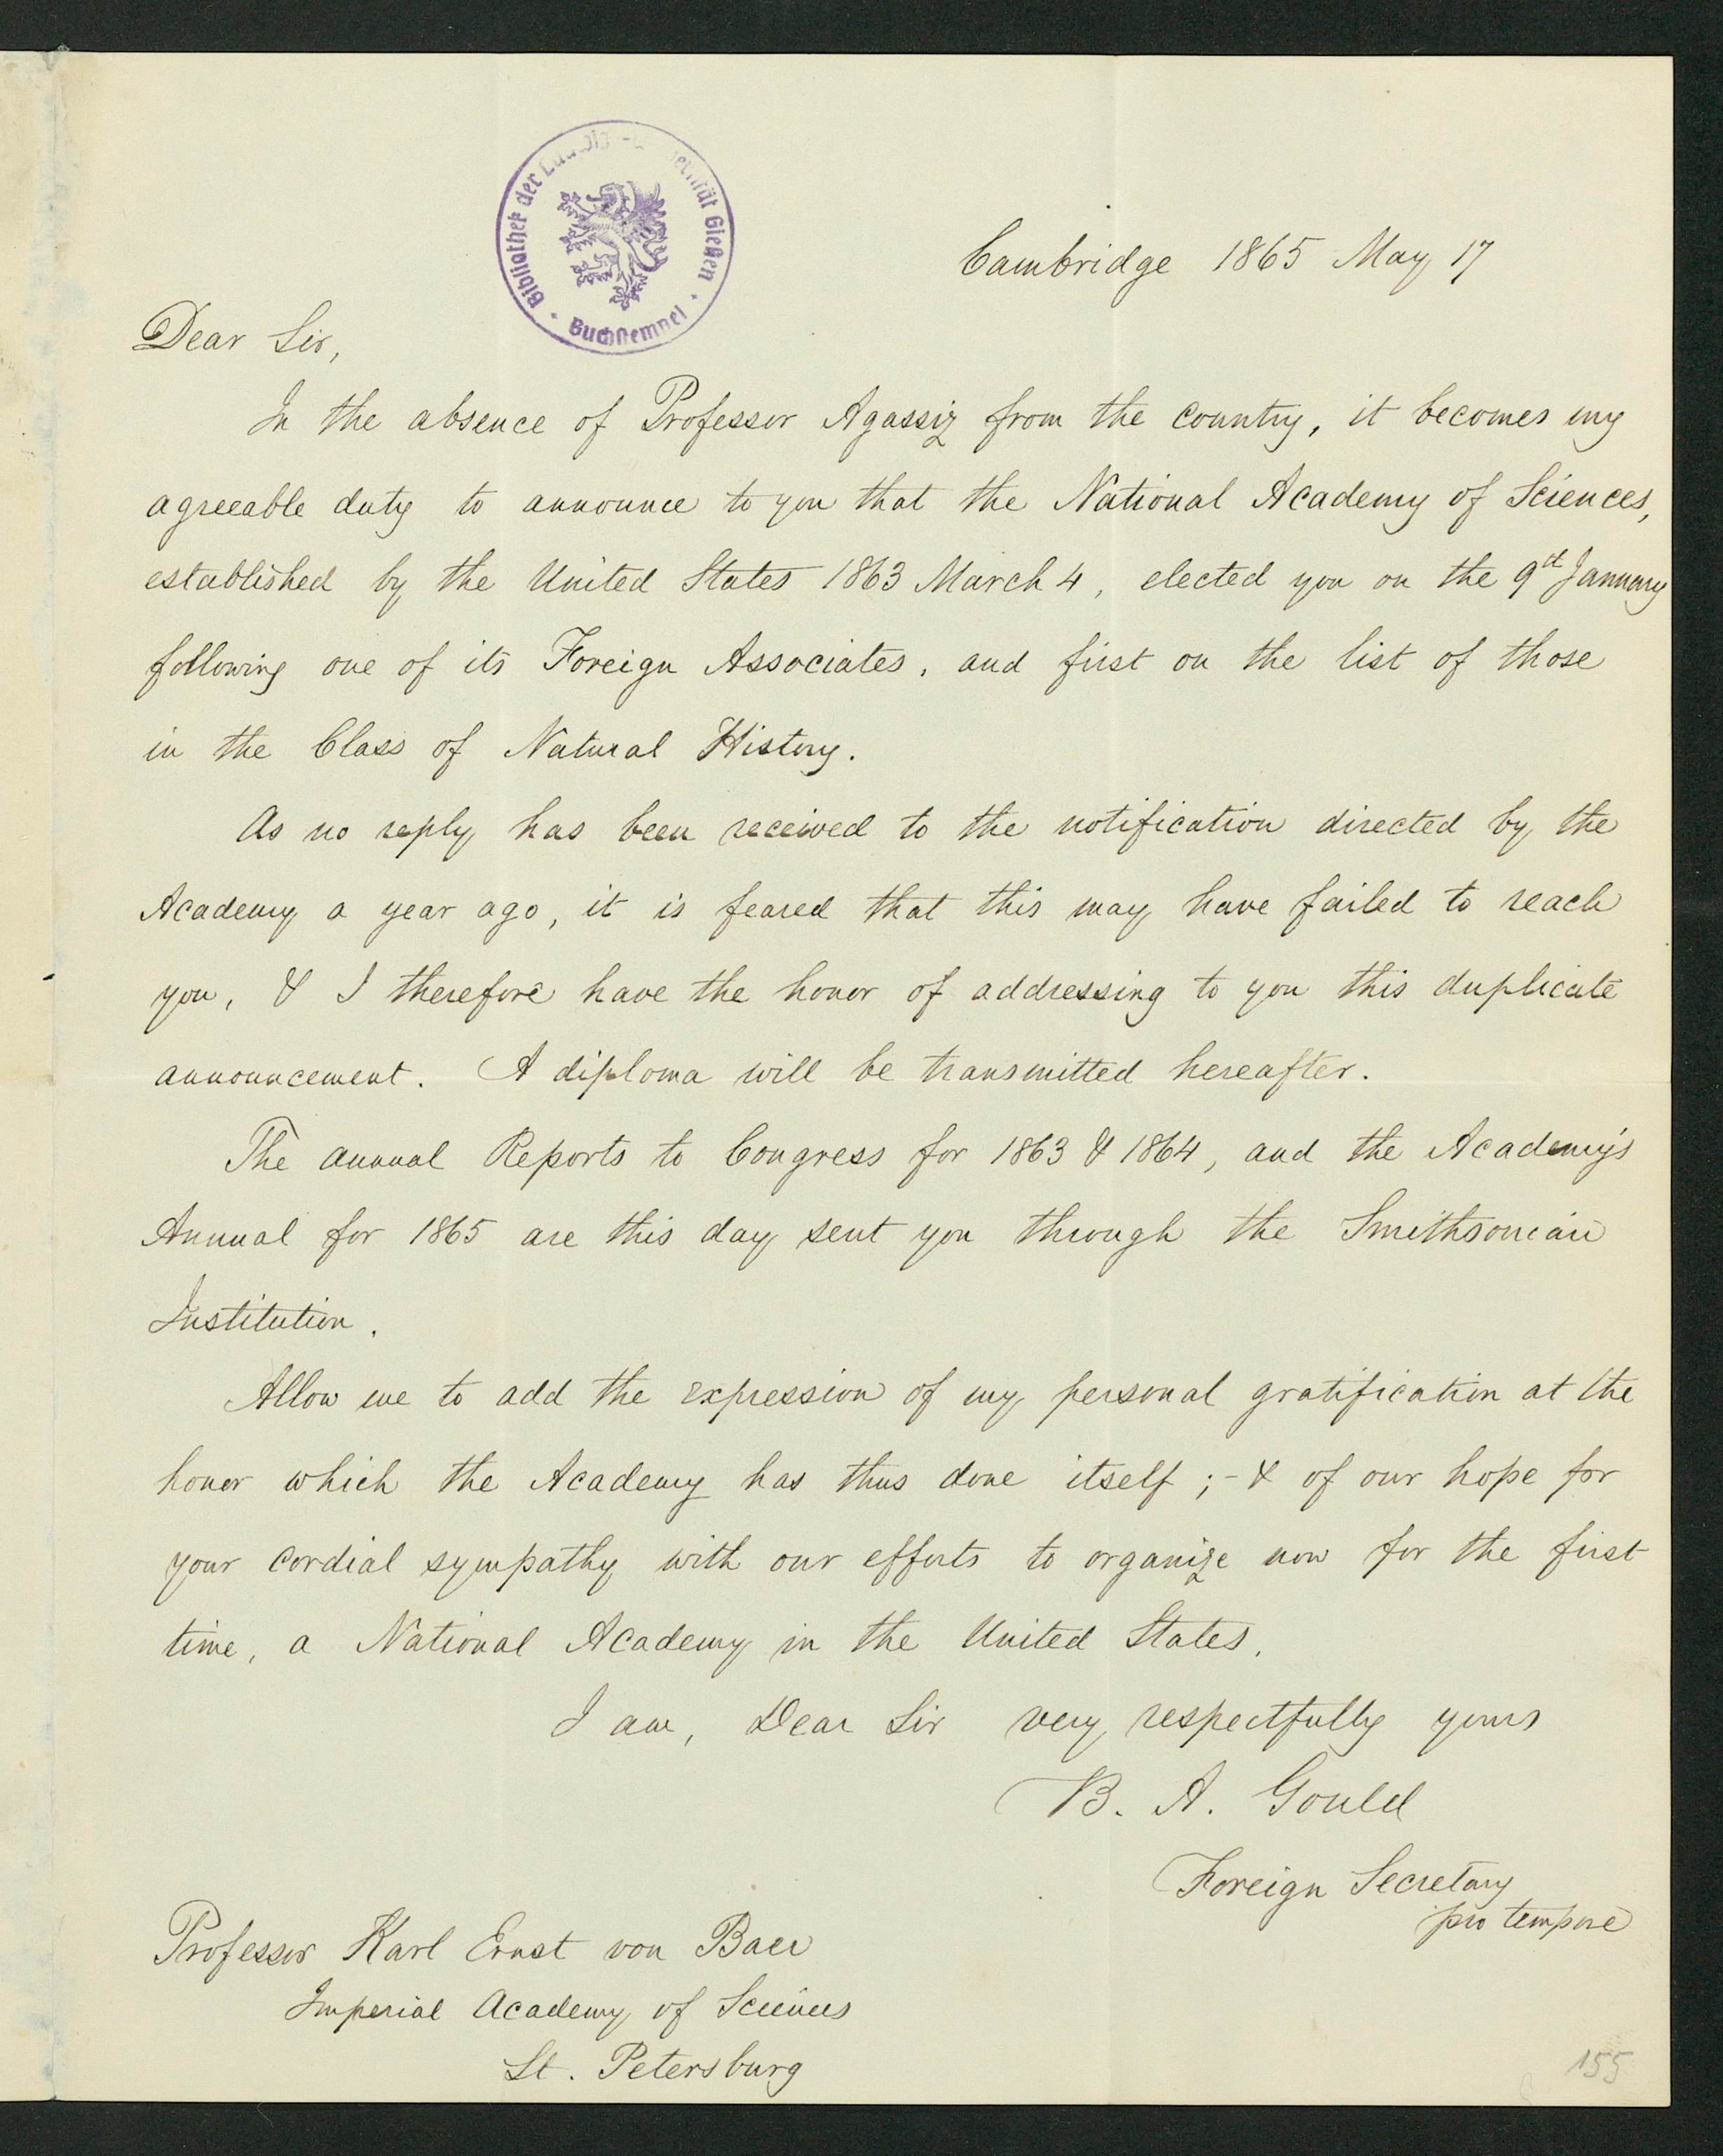 Bibliothek der Gießen
Buchstempel
Cambridge 1865 May 17
Dear Sir,
In the absence of Professor Agassiz from the country, it becomes my
agreeable duty to announce to you that the National Academy of Sciences,
established by the United States 1863 March 4, elected you on the 9th January
following one of its Foreign Associates, and first on the list of those
in the Class of Natural History.
As no reply has been received to the notification directed by the
Academy a year ago, it is feared that this may have failed to reach
you, & I therefore have the honor of addressing to you this duplicate
announcement. A diploma will be transmitted hereafter.
The annual Reports to Congress for 1863 & 1864, and the Academy's
Annual for 1865 are this day sent you through the Smithsonian
Institution.
Allow me to add the expression of my personal gratification at the
honor which the Academy has thus done itself; - & of our hope for
your cordial sympathy with our efforts to organize now for the first
time, a National Academy in the United States.
I am, Dear Sir very respectfully yours
B. A. Gould
Foreign Secretary
pro tempore
Professor Karl Ernst von Baer
Imperial Academy of Sciences
St. Petersburg
155